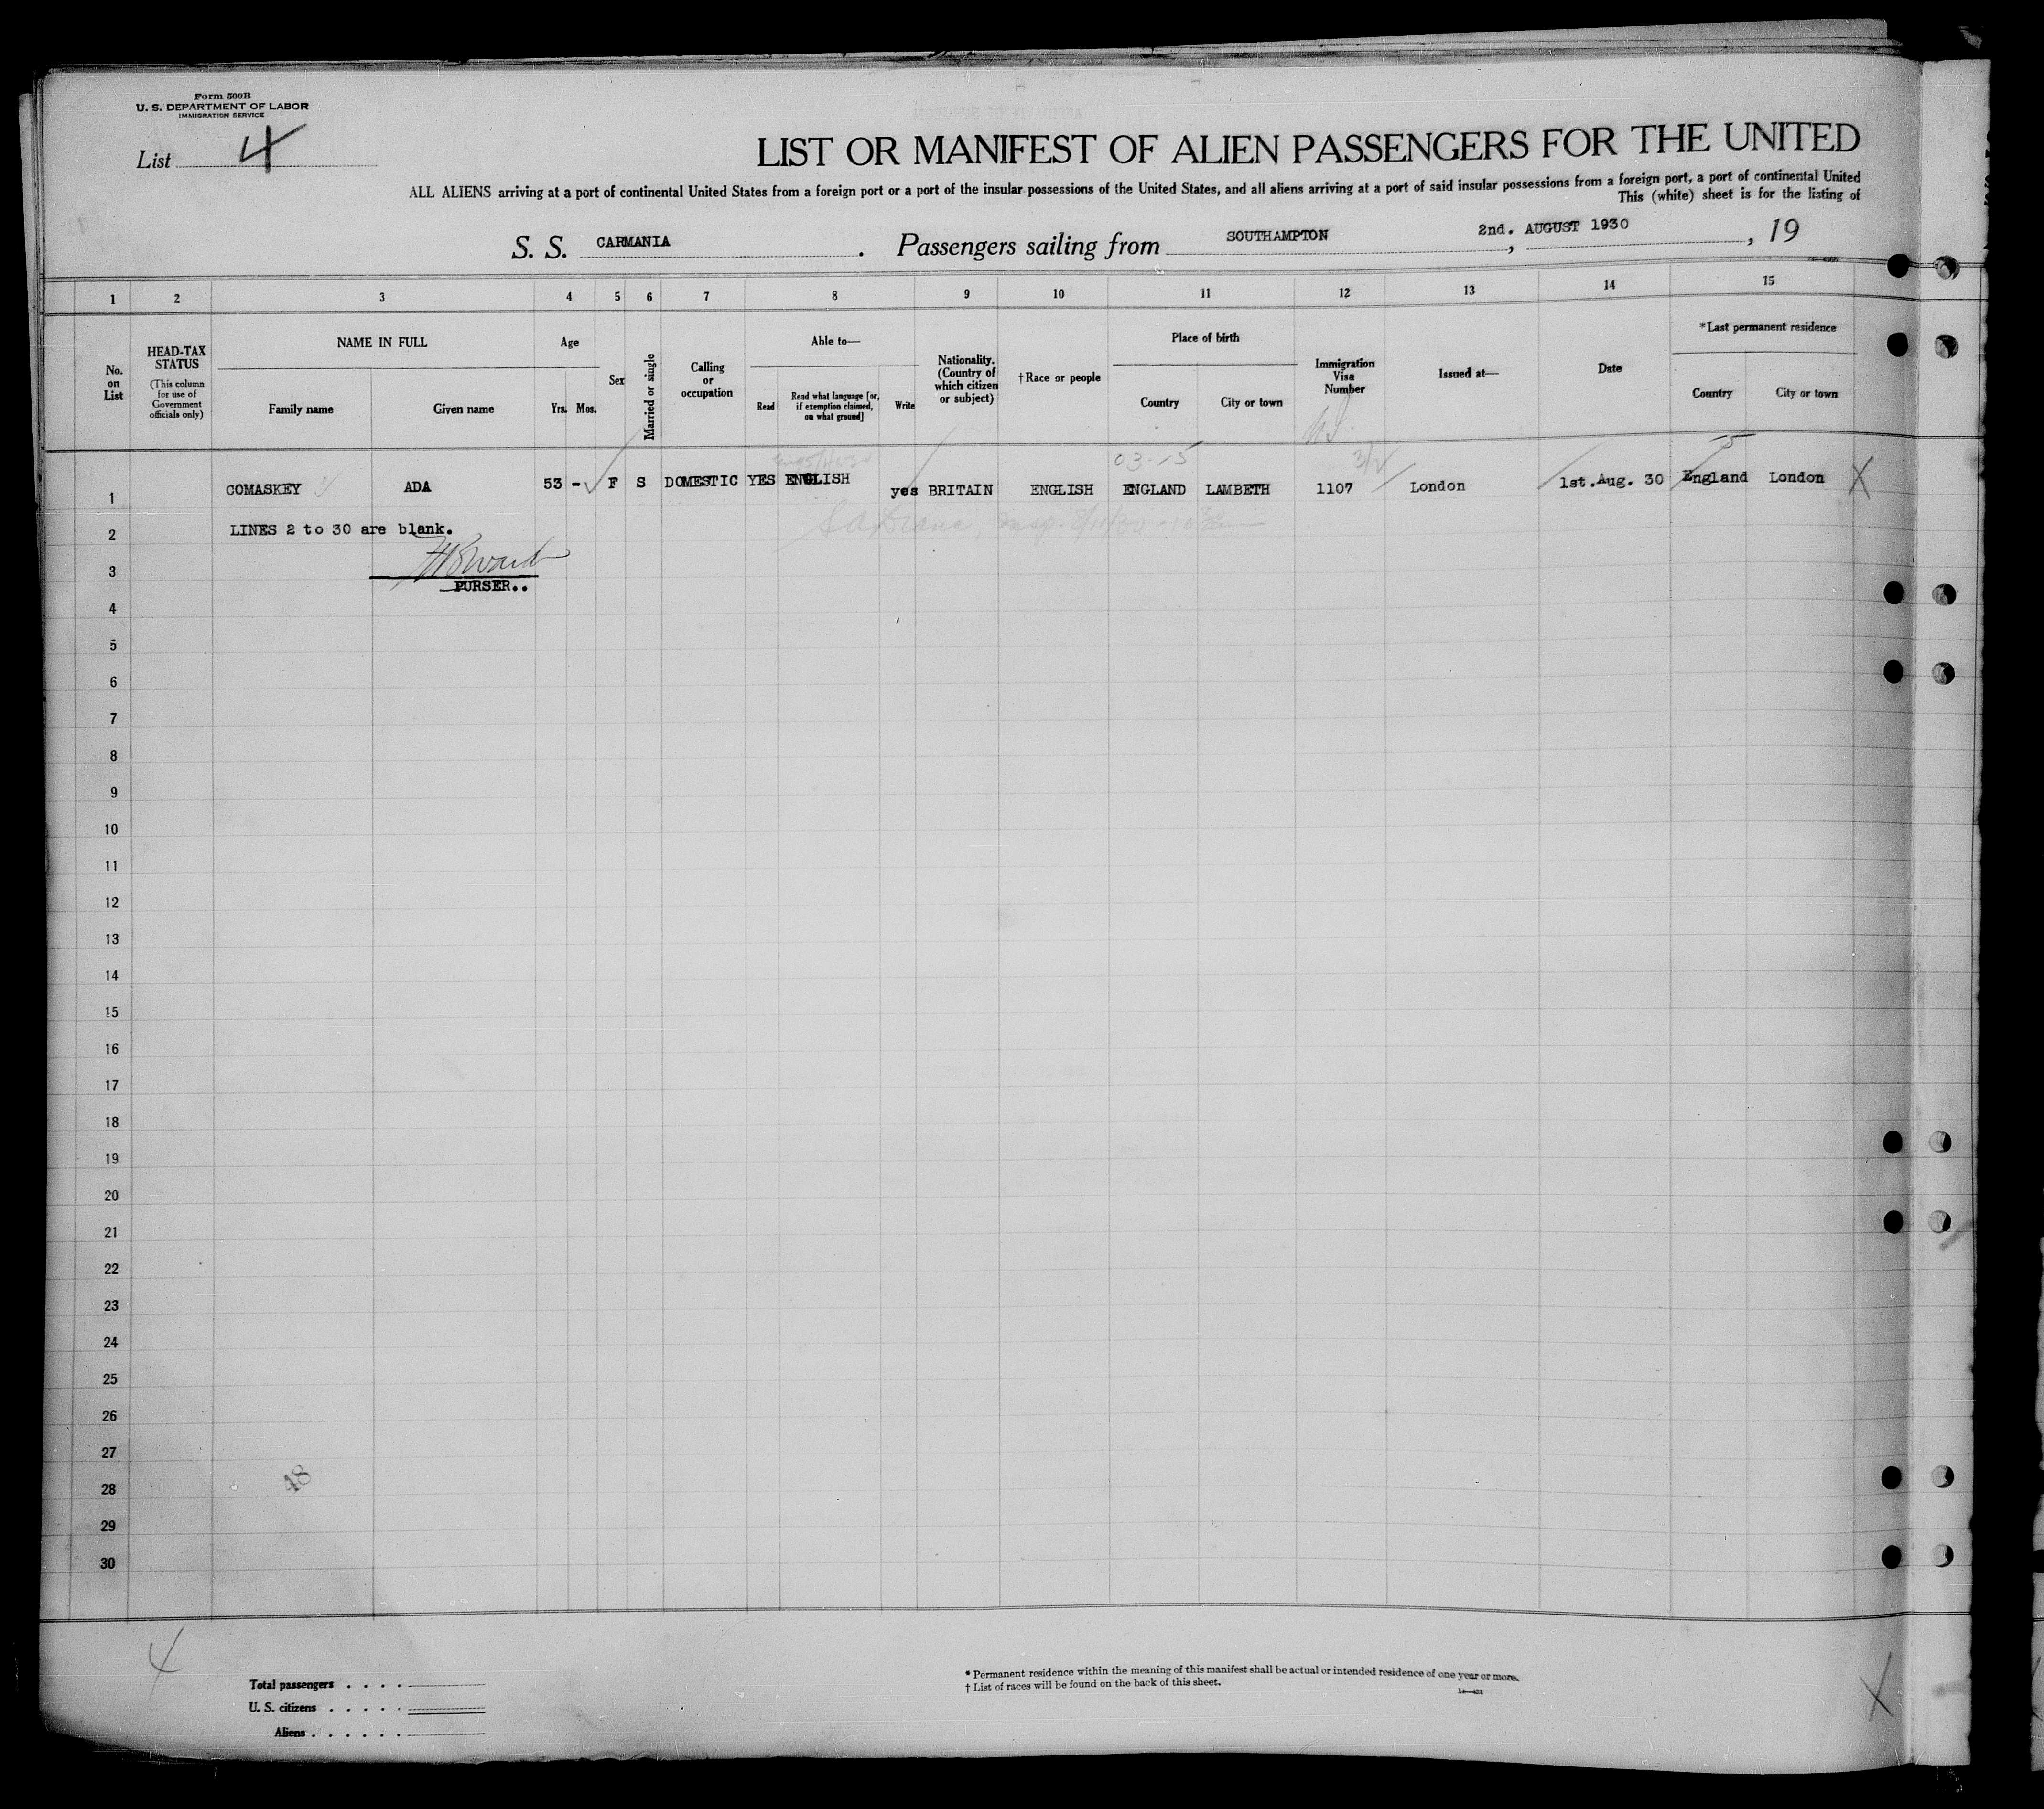 Form 500B
U. S. DEPARTMENT OF LABOR
IMMIGRATION SERVICE
List 4
LIST OR MANIFEST OF ALIEN PASSENGERS FOR THE UNITED
ALL ALIENS arriving at a port of continental United States from a foreign port or a port of the insular possessions of the United States, and all aliens arriving at a port of said insular possessions from a foreign port, a port of continental United
This (white) sheet is for the listing of
S. S. CARMANIA. Passengers sailing from SOUTHAMPTON, 2nd. AUGUST 1930, 19
1 2 3 4 5 6 7 8 9 10 11 12 13 14 15
No. on List
HEAD-TAX STATUS
(This column for use of Government officials only)
NAME IN FULL
Family name Given name
Age
Yrs. Mos.
Sex
Married or single
Calling or occupation
Able to—
Read
Read what language [or, if exemption claimed, on what ground]
Write
Nationality. (Country of which citizen or subject)
†Race or people
Place of birth
Country City or town
Immigration Visa Number
Issued at—
Date
*Last permanent residence
Country City or town
03-15
1 COMASKEY ADA 53 - F S DOMESTIC YES ENGLISH yes BRITAIN ENGLISH ENGLAND LAMBETH 1107 London 1st.Aug. 30 England London X
2 LINES 2 to 30 are blank.
3
PURSER..
4
5
6
7
8
9
10
11
12
13
14
15
16
17
18
19
20
21
22
23
24
25
26
27
48
28
29
30
4
Total passengers . . . .
U. S. citizens . . . . .
Aliens . . . . . .
* Permanent residence within the meaning of this manifest shall be actual or intended residence of one year or more.
† List of races will be found on the back of this sheet.
X